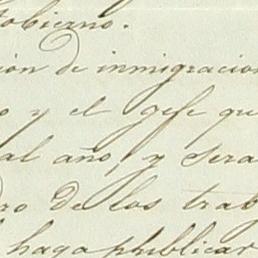 Gobierno.
ción de inmigracion
o y el gefe que
al año, y sera
ro de los trab
haga publicar